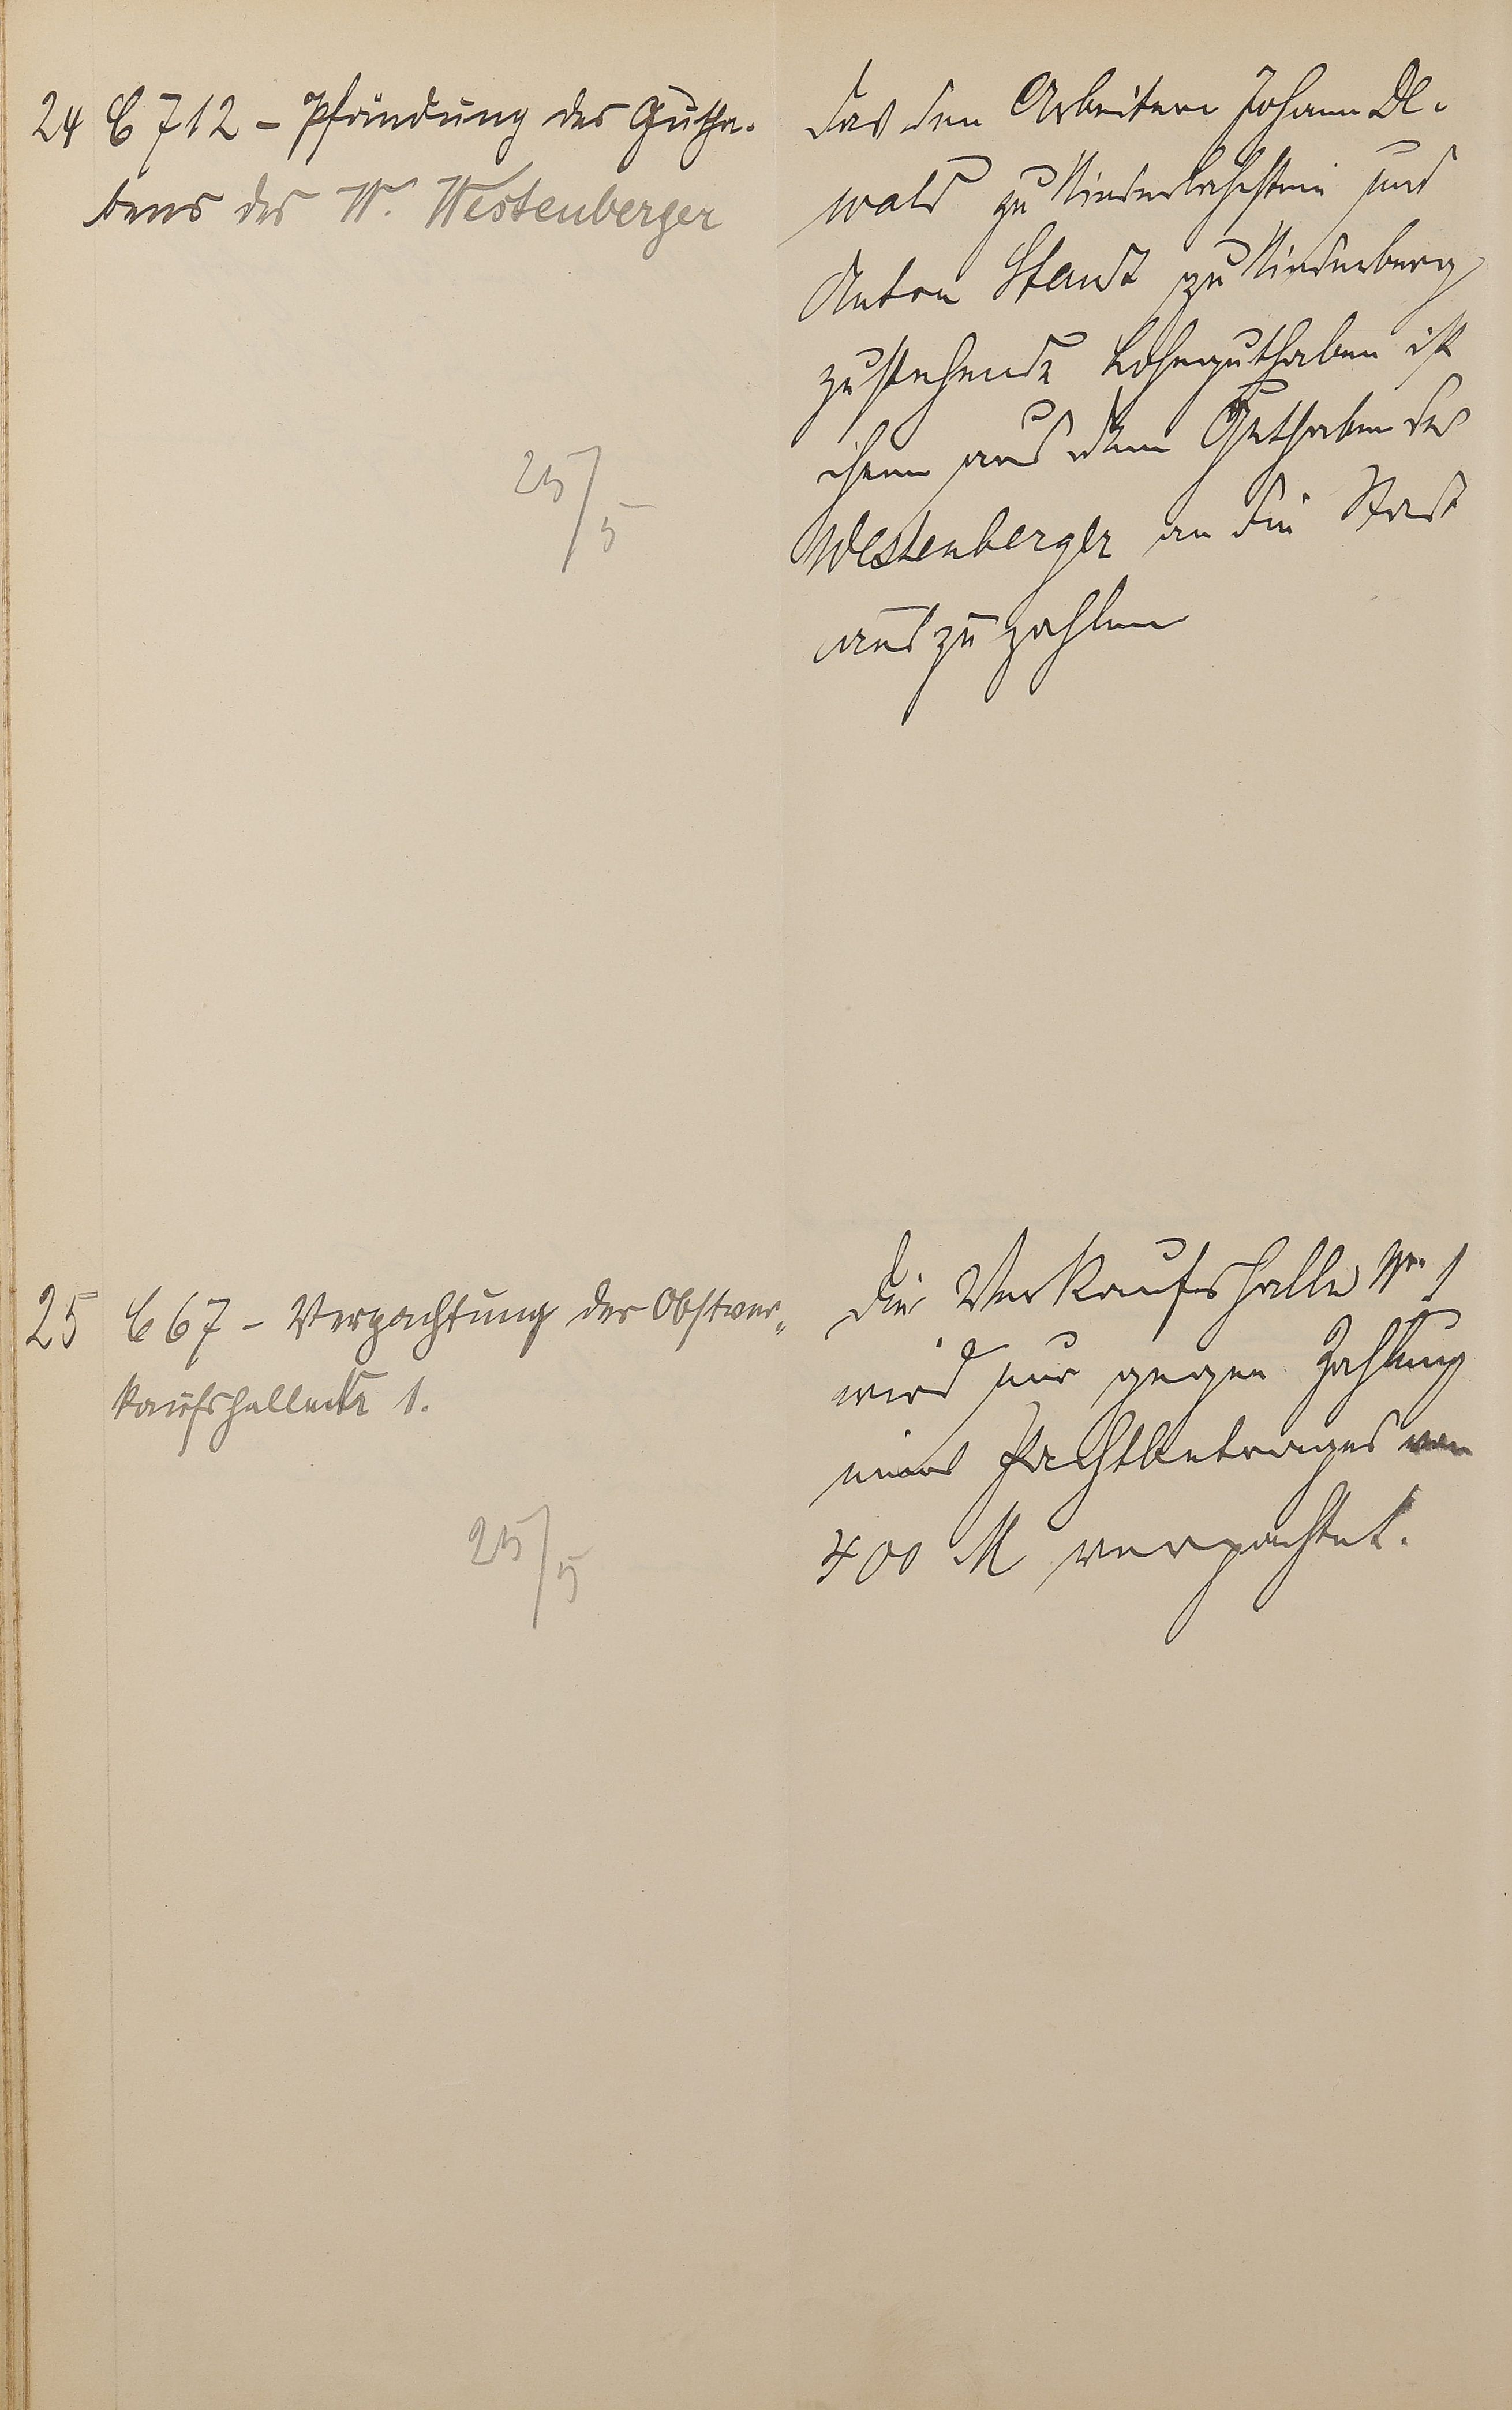 24 C 712 - Pfändung des Gutha-
bens des W. Westenberger
25/5
Das den Arbeitern Johann De-
wald zu Niederlahnstein und
Anton Staudt zu Niederberg
zustehende Lohnguthaben ist
ihnen aus dem Guthaben des
Westenberger an die Stadt
auszuzahlen
25 C 67 - Verpachtung der Obstver-
kaufshalle 1.
25/5
Die Verkaufshalle Nr. 1
wird nur gegen Zahlung
eines Pachtbetrages von
400 M verpachtet.